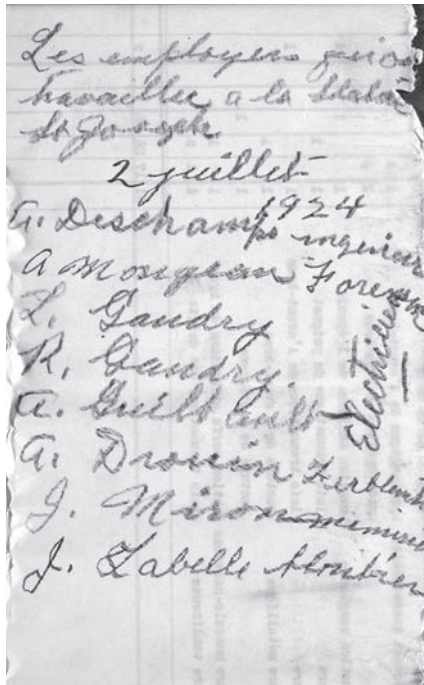 Les employers qui on
travailler a la Statu
St Joseph
2 juillet
1924
A. Deschamps ingenieur
A Mongean Foreman
L. Gaudry
R. Gaudry.
A. Guilbault
Electricien
A. Drouin Ferblanti
J. Miron menuisi
J. Labelle